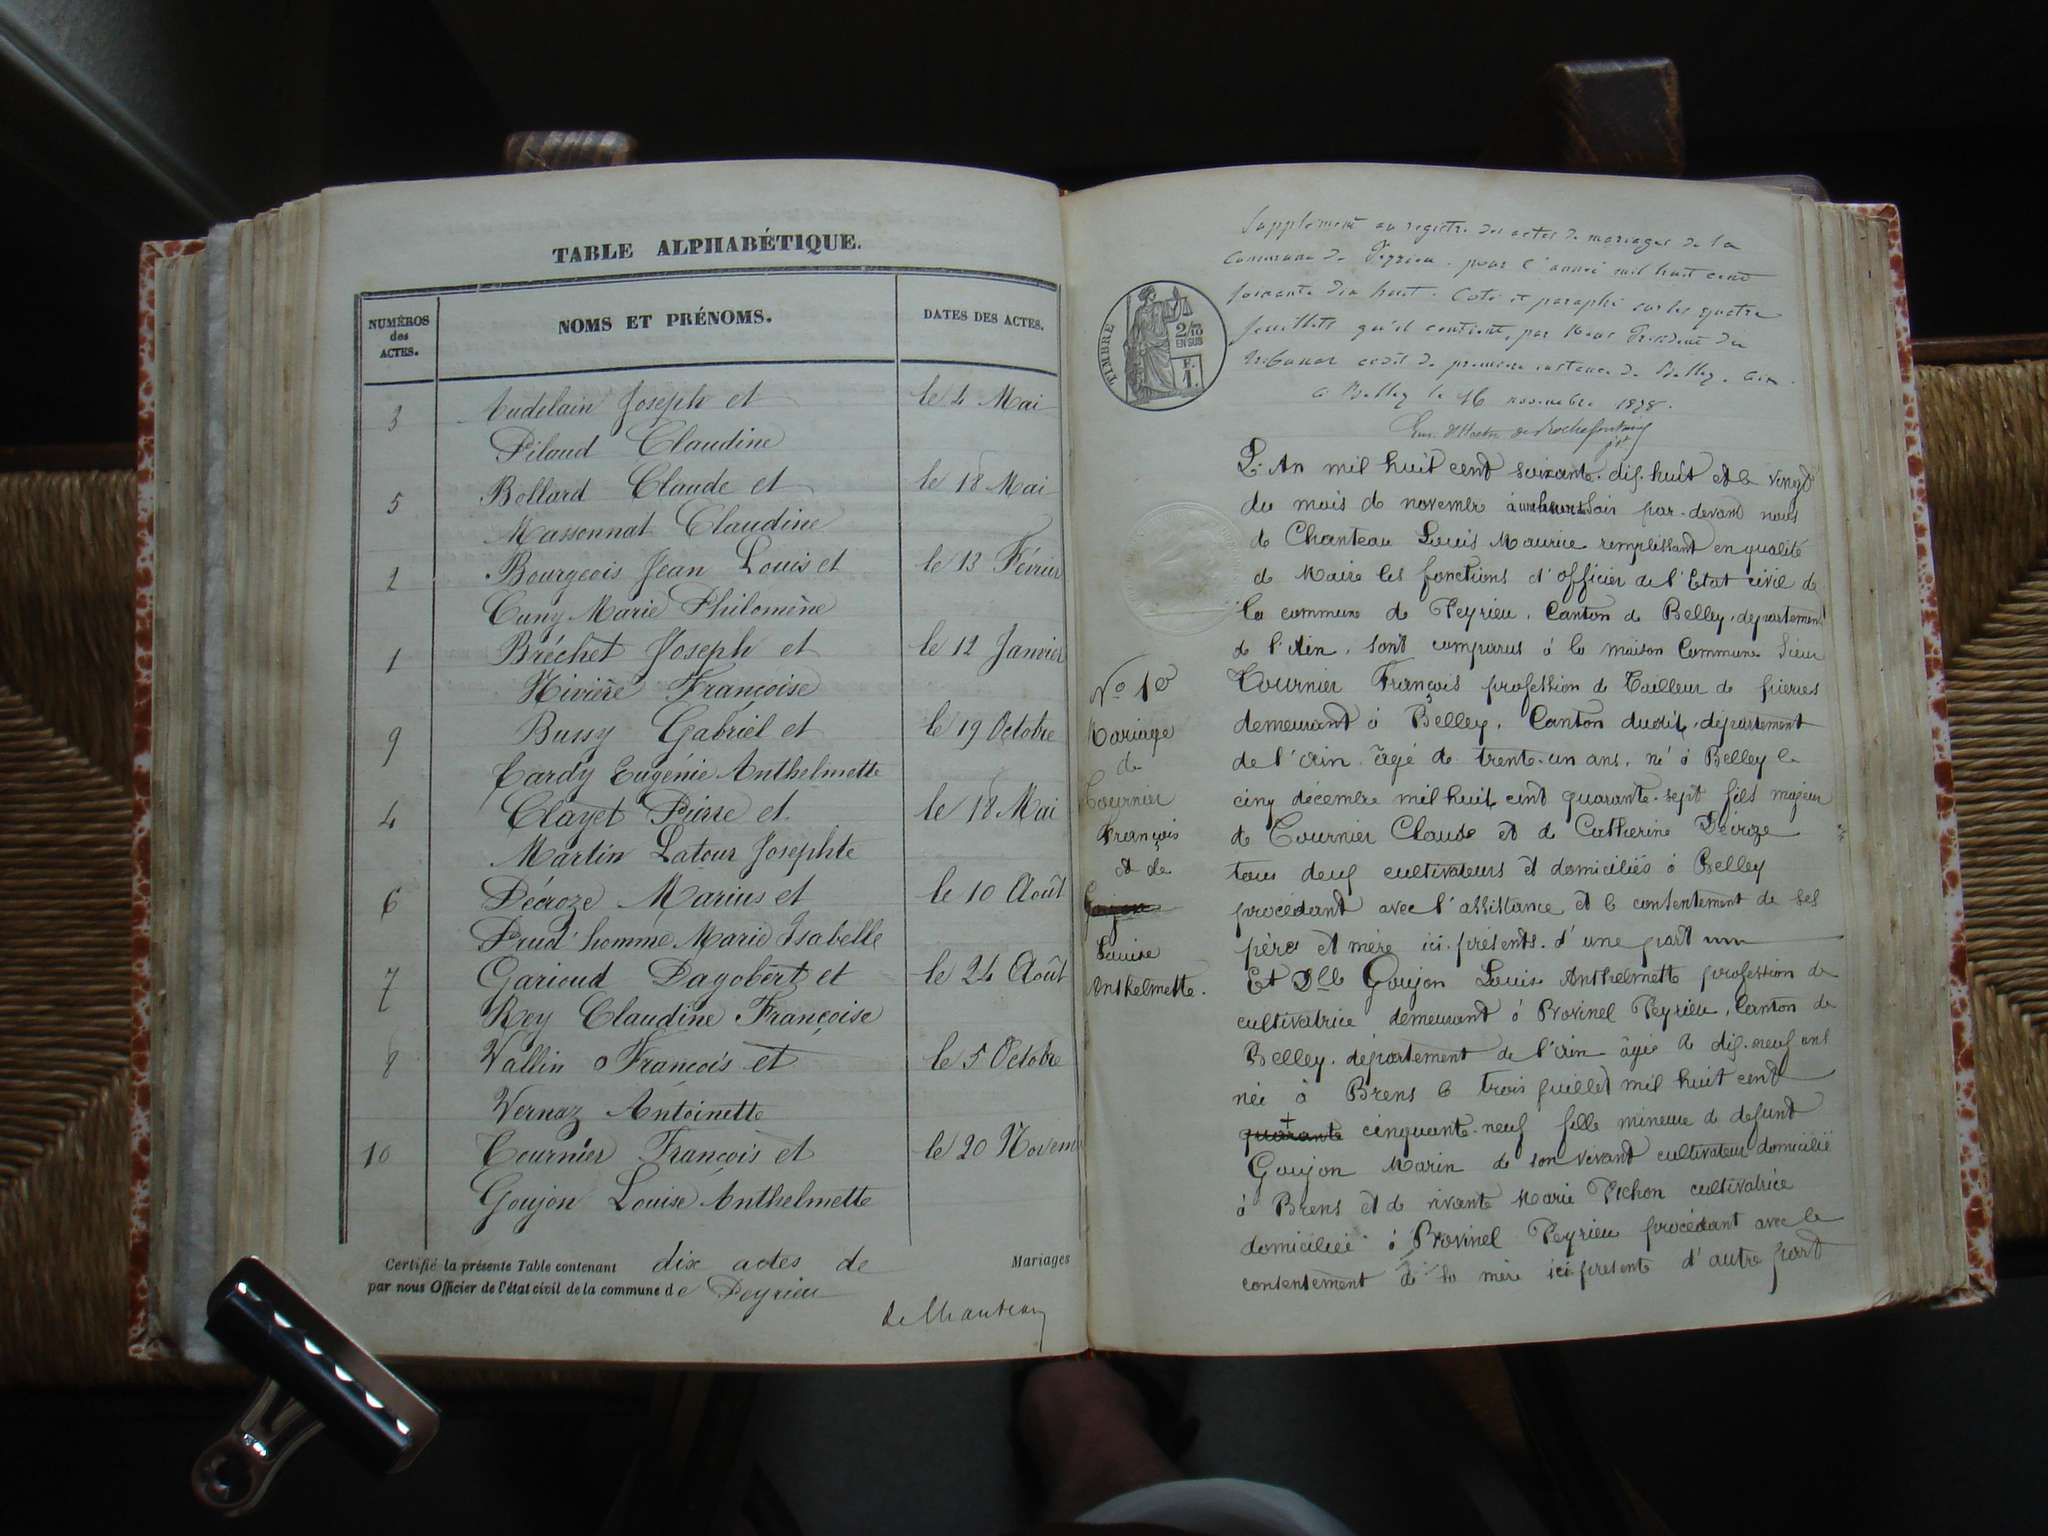 TABLE ALPHABÉTIQUE.
NUMÉROS des ACTES.
NOMS ET PRÉNOMS.
DATES DES ACTES.
3 Audelain Joseph et le 4 Mai
Pilaud Claudine
5 Bollard Claude et le 18 Mai
Massonnat Claudine
2 Bourgeois Jean Louis et le 13 Février
Cuny Marie Philomène
1 Bréchet Joseph et le 12 Janvier
Rivière Françoise
9 Bussy Gabriel et le 19 Octobre
Tardy Eugénie Anthelmette
4 Clayet Pierre et le 18 Mai
Martin Latour Josephte
6 Décroze Marius et le 10 Août
Prud'homme Marie Isabelle
7 Garioud Dagobert et le 24 Août
Rey Claudine Françoise
8 Vallin François et le 5 Octobre
Vernaz Antoinette
10 Tournier François et le 20 Novem
Goujon Louise Anthelmette
Certifié la présente Table contenant dix actes de Mariages
par nous Officier de l'état civil de la commune de Peyrieu
de Chanteau
Supplément au registre des actes de mariages de la
Commune de Peyrieu. pour l'année mil huit cent
soixante dix huit. Coté et paraphé sur les quatre
feuillets qu'il contient, par Nous Président du
tribunal civil de première instance de Belley. Ain.
a Belley le 16 novembre 1878.
TIMBRE
2/10
EN SUS
F.
1.
L'An mil huit cent soixante-dix-huit et le vingt
du mois de novembre à soir par-devant nous
de Chanteau Louis Maurice remplissant en qualité
de Maire les fonctions d'officier de l'Etat civil de
la commune de Peyrieu, Canton de Belley, département
de l'Ain, sont comparus à la maison Commune Sieur
Tournier François profession de Tailleur de pierres
demeurant à Belley, Canton dudit, département
de l'Ain âgé de trente-un ans, né à Belley le
cinq décembre mil huit cent quarante-sept fils majeur
de Tournier Claude et de Catherine Décroze
tous deux cultivateurs et domiciliés à Belley
procédant avec l'assistance et le consentement de ses
père et mère ici présents d'une part
Et Dlle Goujon Louise Anthelmette profession de
cultivatrice demeurant à Provinel Peyrieu, Canton de
Belley, département de l'Ain âgée de dix-neuf ans
née à Brens le trois juillet mil huit cent
quarante cinquante-neuf fille mineure de defunt
Goujon Marin de son vivant cultivateur domicilié
à Brens et de vivante Marie Pichon cultivatrice
domiciliée à Provinel Peyrieu procédant avec le
consentement de sa mère ici présente d'autre part
No 10
Mariage
de
Tournier
François
et de
Goujon
Louise
Anthelmette.